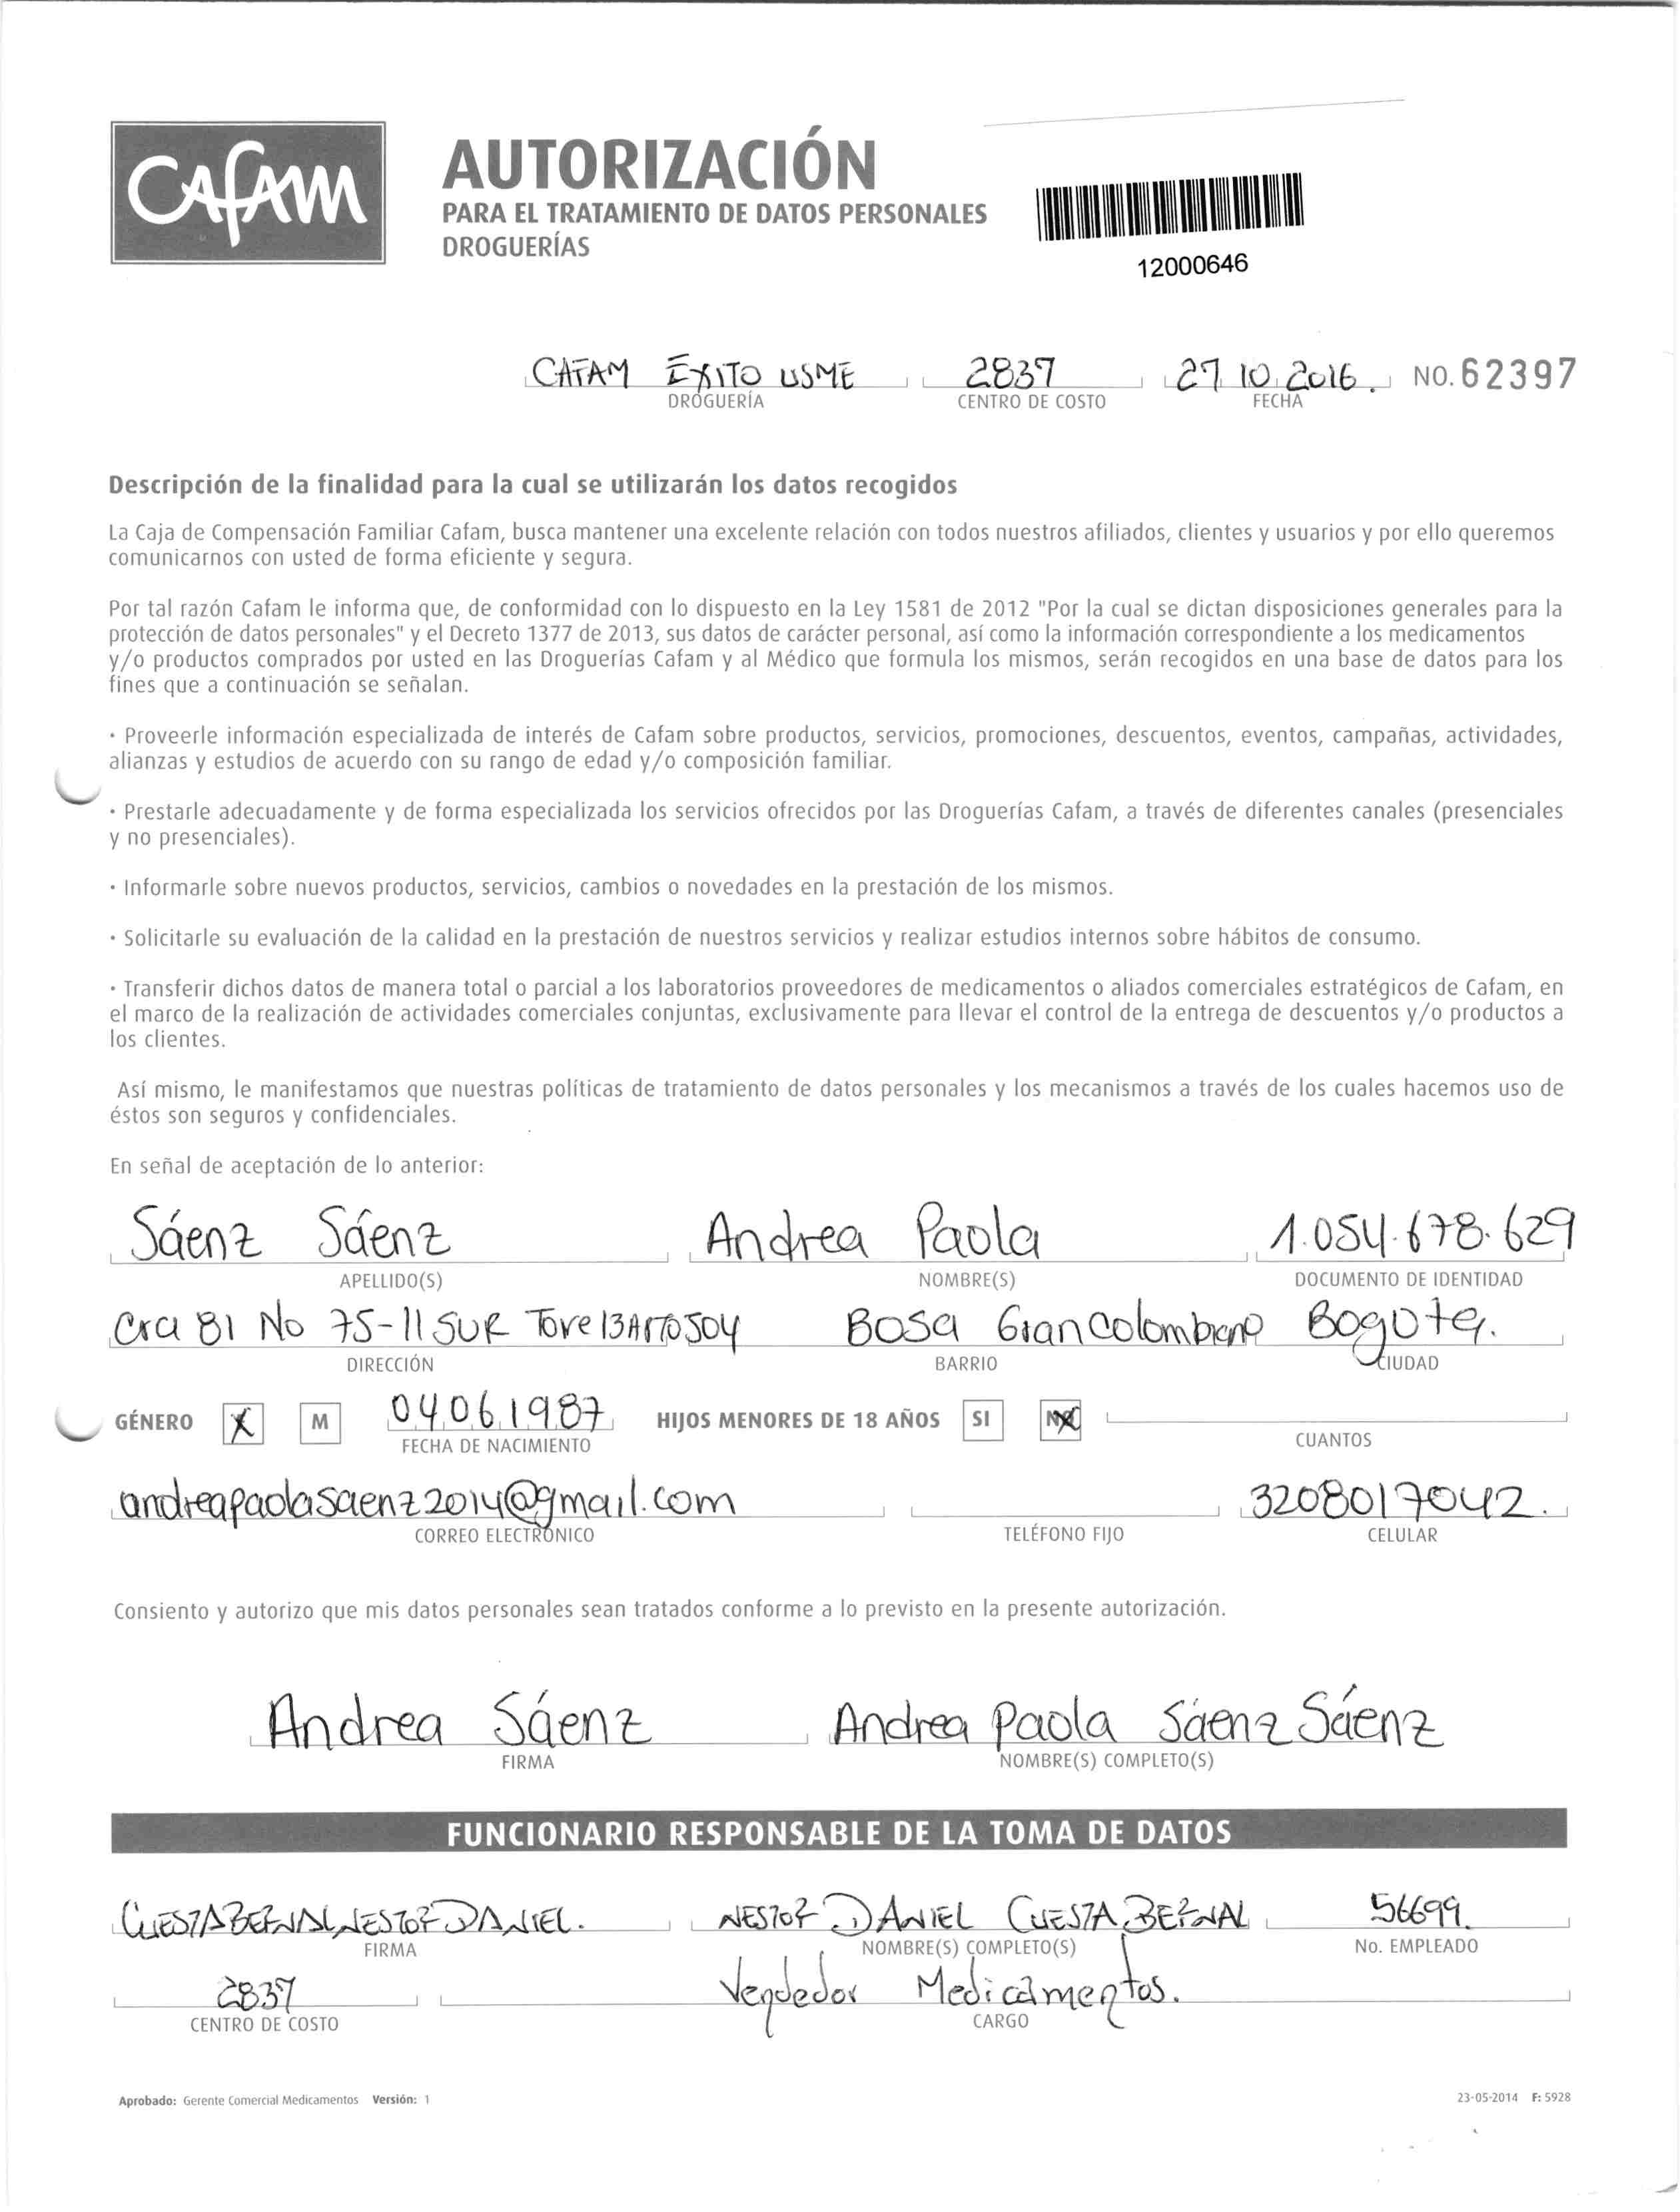 CAFAM
AUTORIZACIÓN
PARA EL TRATAMIENTO DE DATOS PERSONALES
DROGUERÍAS
12000646
CAFAM ÉXITO USME 2837 27 10 2016. NO. 62397
DROGUERÍA CENTRO DE COSTO FECHA
Descripción de la finalidad para la cual se utilizarán los datos recogidos
La Caja de Compensación Familiar Cafam, busca mantener una excelente relación con todos nuestros afiliados, clientes y usuarios y por ello queremos
comunicarnos con usted de forma eficiente y segura.
Por tal razón Cafam le informa que, de conformidad con lo dispuesto en la Ley 1581 de 2012 "Por la cual se dictan disposiciones generales para la
protección de datos personales" y el Decreto 1377 de 2013, sus datos de carácter personal, así como la información correspondiente a los medicamentos
y/o productos comprados por usted en las Droguerías Cafam y al Médico que formula los mismos, serán recogidos en una base de datos para los
fines que a continuación se señalan.
· Proveerle información especializada de interés de Cafam sobre productos, servicios, promociones, descuentos, eventos, campañas, actividades,
alianzas y estudios de acuerdo con su rango de edad y/o composición familiar.
· Prestarle adecuadamente y de forma especializada los servicios ofrecidos por las Droguerías Cafam, a través de diferentes canales (presenciales
y no presenciales).
· Informarle sobre nuevos productos, servicios, cambios o novedades en la prestación de los mismos.
· Solicitarle su evaluación de la calidad en la prestación de nuestros servicios y realizar estudios internos sobre hábitos de consumo.
· Transferir dichos datos de manera total o parcial a los laboratorios proveedores de medicamentos o aliados comerciales estratégicos de Cafam, en
el marco de la realización de actividades comerciales conjuntas, exclusivamente para llevar el control de la entrega de descuentos y/o productos a
los clientes.
Así mismo, le manifestamos que nuestras políticas de tratamiento de datos personales y los mecanismos a través de los cuales hacemos uso de
éstos son seguros y confidenciales.
En señal de aceptación de lo anterior:
Sáenz Sáenz Andrea Paola 1.054.678.629
APELLIDO(S) NOMBRE(S) DOCUMENTO DE IDENTIDAD
Cra 81 No 75-11 SUR Torre 13 Arto 504 Bosa Grancolombiano Bogota.
DIRECCIÓN BARRIO CIUDAD
GÉNERO X M 04 06 1987 HIJOS MENORES DE 18 AÑOS SI NO X
FECHA DE NACIMIENTO CUANTOS
andreapaolasaenz2014@gmail.com 3208017042.
CORREO ELECTRÓNICO TELÉFONO FIJO CELULAR
Consiento y autorizo que mis datos personales sean tratados conforme a lo previsto en la presente autorización.
Andrea Sáenz Andrea Paola Sáenz Sáenz
FIRMA NOMBRE(S) COMPLETO(S)
FUNCIONARIO RESPONSABLE DE LA TOMA DE DATOS
CUESTA BERNAL NESTOR DANIEL. NESTOR DANIEL CUESTA BERNAL 56699.
FIRMA NOMBRE(S) COMPLETO(S) No. EMPLEADO
2837 Vendedor Medicamentos.
CENTRO DE COSTO CARGO
Aprobado: Gerente Comercial Medicamentos Versión: 1 23-05-2014 F: 5928